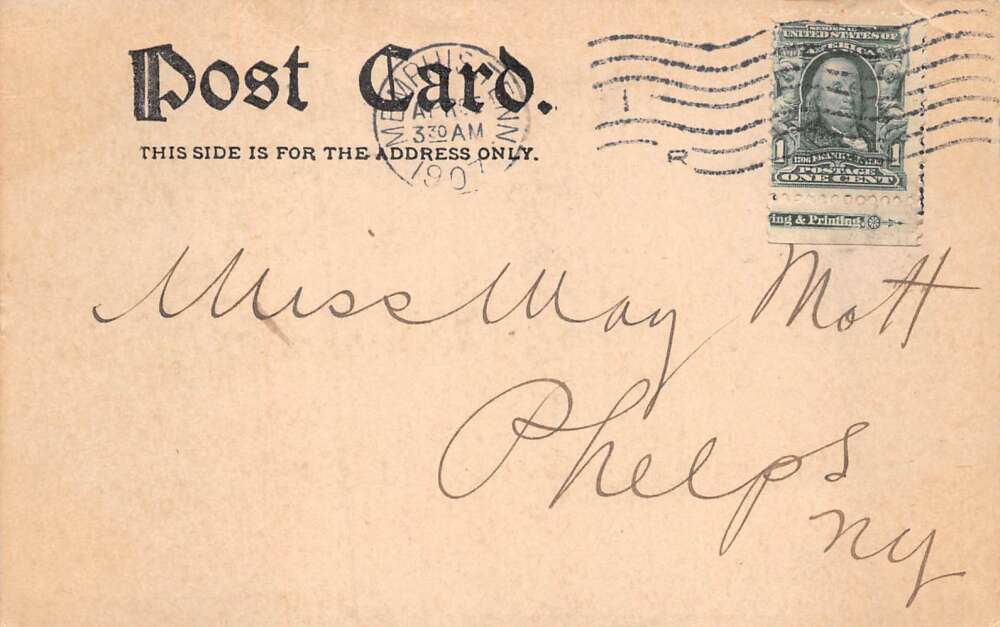 Post Card.
THIS SIDE IS FOR THE ADDRESS ONLY.
MEMPHIS, TENN
APR
3 30 AM
1907
R
SERIES 1902
UNITED STATES OF
AMERICA
1 1
1706 FRANKLIN 1790
POSTAGE
ONE CENT
ing & Printing.
Miss May Mott
Phelps
NY